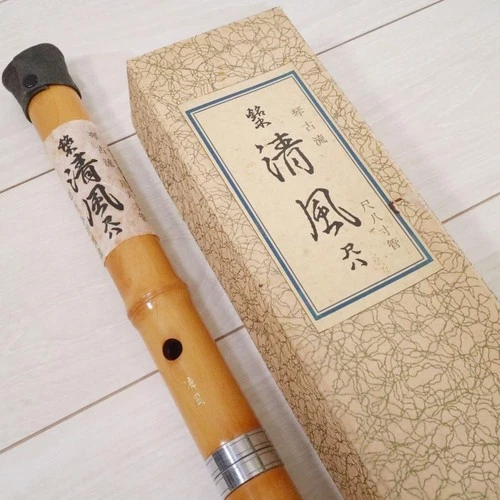 琴古流
清風 尺八
清風
琴古流
尺八寸管
清風 尺八